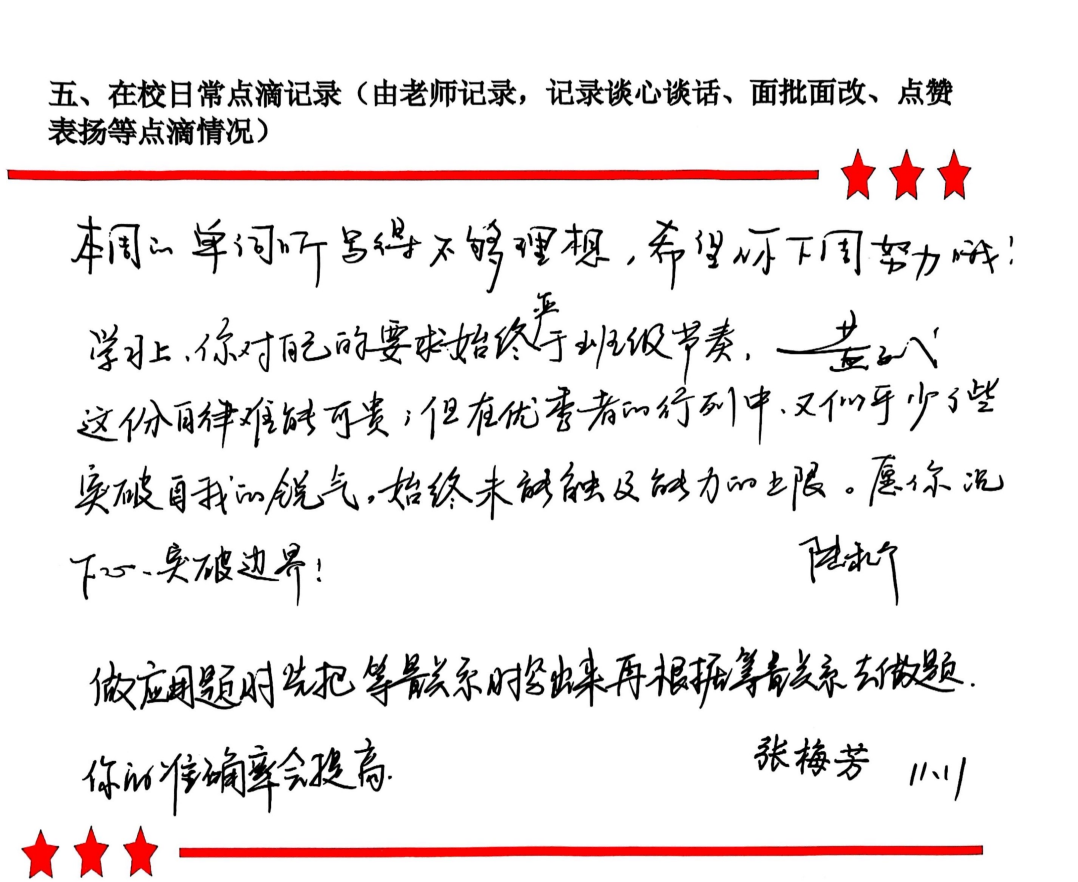 五、在校日常点滴记录（由老师记录，记录谈心谈话、面批面改、点赞
表扬等点滴情况）
本周的单词听写得不够理想，希望你下周努力哦！
学习上，你对自己的要求始终严于班级节奏，
这份自律难能可贵；但在优秀者的行列中，又似乎少了些
突破自我的锐气，始终未能触及能力的上限。愿你沉
下心、突破边界！
做应用题时先把等量关系时写出来再根据等量关系去做题.
你的准确率会提高.
张梅芳 11.11